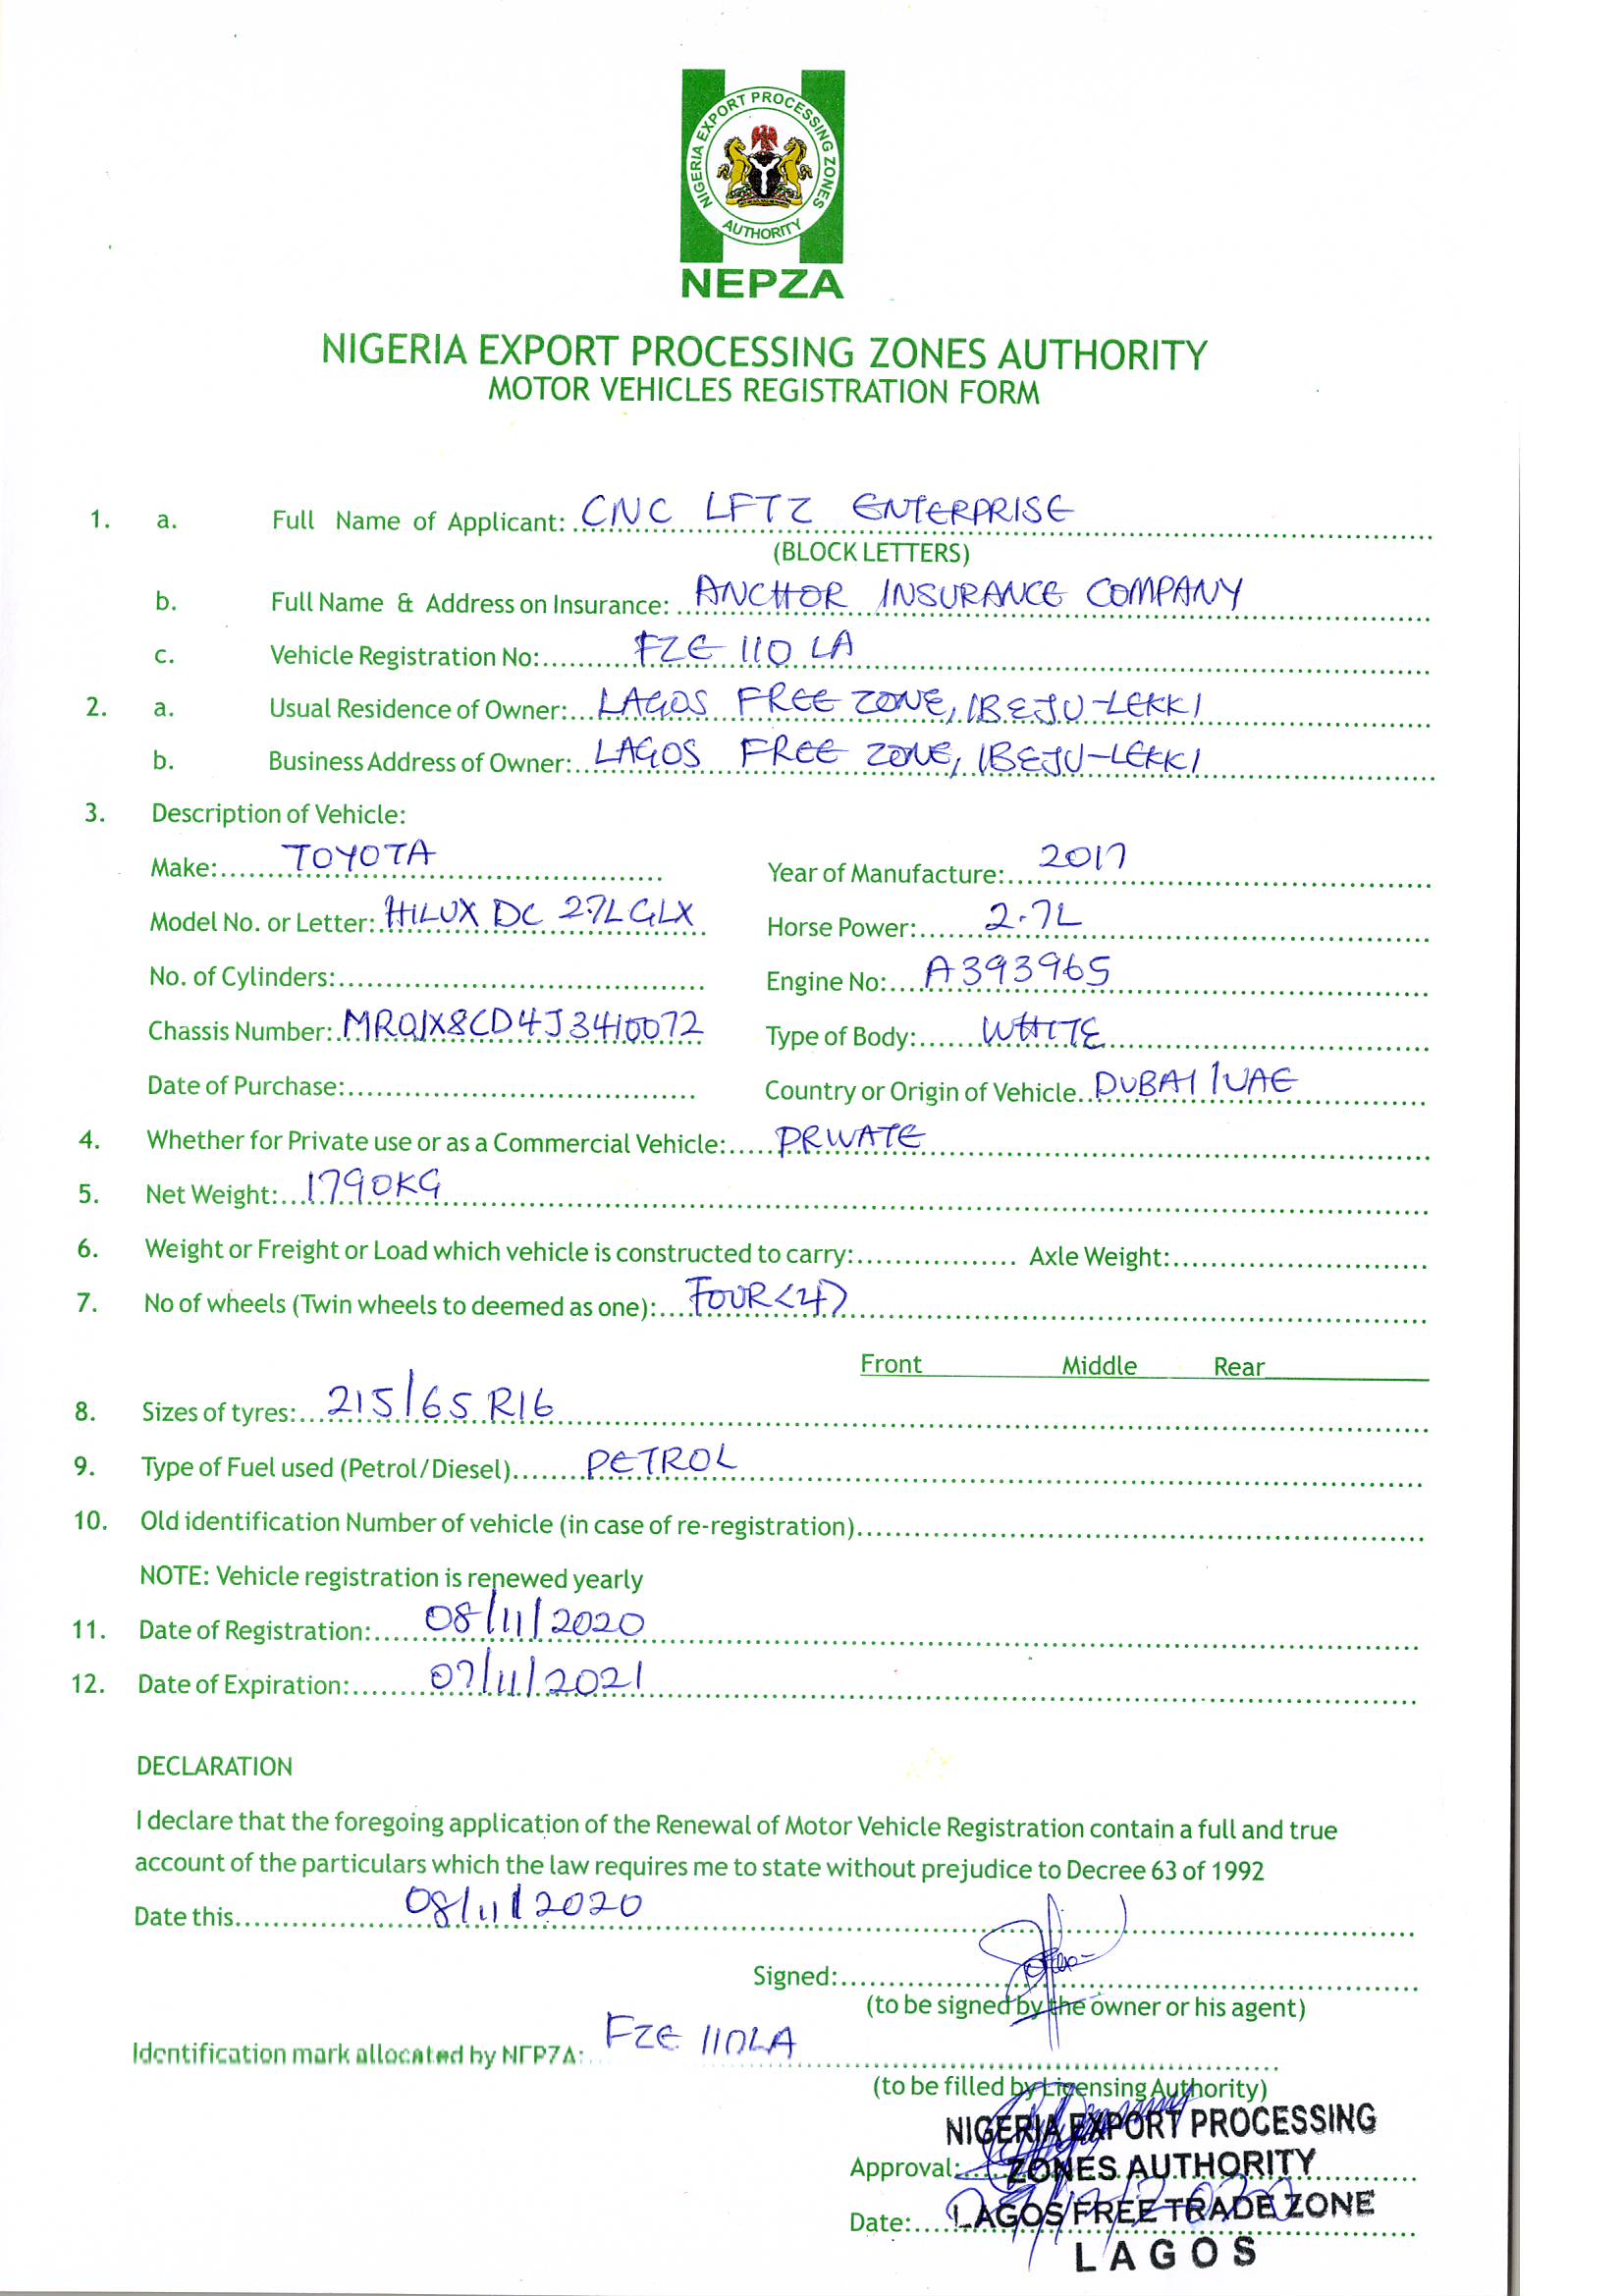 NIGERIA EXPORT PROCESSING ZONES
AUTHORITY
NEPZA
NIGERIA EXPORT PROCESSING ZONES AUTHORITY
MOTOR VEHICLES REGISTRATION FORM
1. a. Full Name of Applicant: CNC LFTZ ENTERPRISE
(BLOCK LETTERS)
b. Full Name & Address on Insurance: ANCHOR INSURANCE COMPANY
c. Vehicle Registration No: FZE 110 LA
2. a. Usual Residence of Owner: LAGOS FREE ZONE, IBEJU-LEKKI
b. Business Address of Owner: LAGOS FREE ZONE, IBEJU-LEKKI
3. Description of Vehicle:
Make: TOYOTA Year of Manufacture: 2017
Model No. or Letter: HILUX DC 2.7L GLX Horse Power: 2.7L
No. of Cylinders: Engine No: A393965
Chassis Number: MR0JX8CD4J3410072 Type of Body: WHITE
Date of Purchase: Country or Origin of Vehicle DUBAI/UAE
4. Whether for Private use or as a Commercial Vehicle: PRIVATE
5. Net Weight: 1790KG
6. Weight or Freight or Load which vehicle is constructed to carry: Axle Weight:
7. No of wheels (Twin wheels to deemed as one): FOUR (4)
Front Middle Rear
8. Sizes of tyres: 215/65 R16
9. Type of Fuel used (Petrol/Diesel) PETROL
10. Old identification Number of vehicle (in case of re-registration)
NOTE: Vehicle registration is renewed yearly
11. Date of Registration: 08/11/2020
12. Date of Expiration: 07/11/2021
DECLARATION
I declare that the foregoing application of the Renewal of Motor Vehicle Registration contain a full and true
account of the particulars which the law requires me to state without prejudice to Decree 63 of 1992
Date this 08/11/2020
Signed:
(to be signed by the owner or his agent)
Identification mark allocated by NEPZA: FZE 110LA
(to be filled by Licensing Authority)
NIGERIA EXPORT PROCESSING
Approval: ZONES AUTHORITY
Date: LAGOS FREE TRADE ZONE
LAGOS